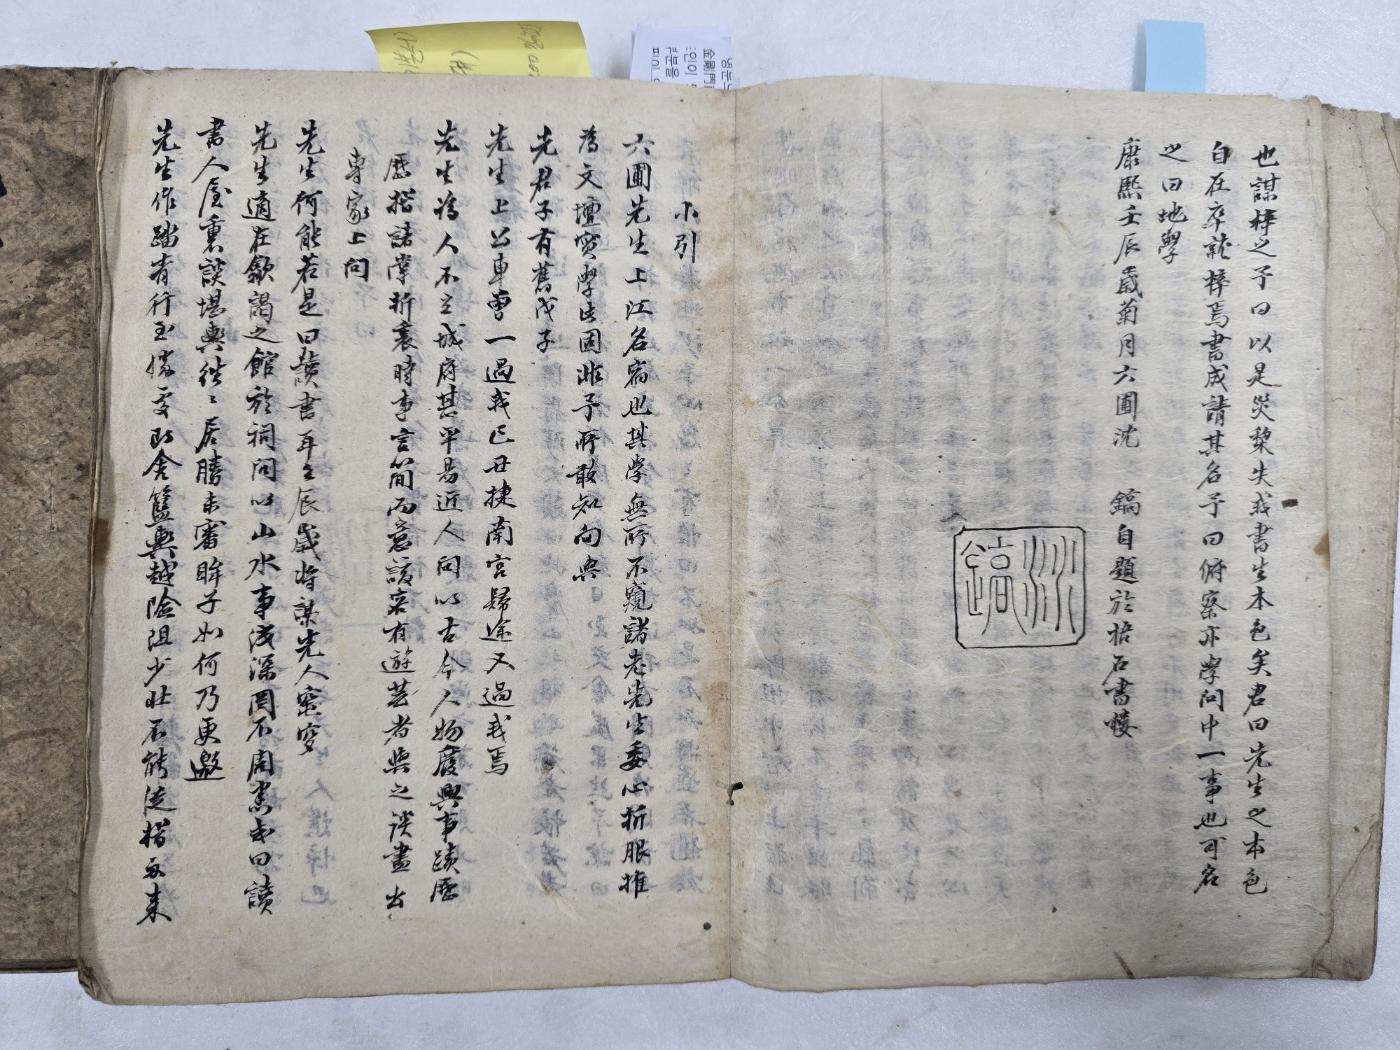 也謀梓之予曰以是災棃失我書生本色矣君曰先生之本色
自在卒謀梓焉書成請其名予曰俯察亦學問中一事也可名
之曰地學
康熙壬辰歲菊月六圃沈　鎬自題於梧石書樓
沈鎬
小引
六圃先生上江名宿也其學無所不窺諸老先生委心折服推
為文壇實學此固非予所敢知向與
先君子有舊戊子
先生上公車曾一過我己丑捷南宮歸途又過我焉
先生為人不立城府甚平易近人問以古今人物廢興事蹟歷
歷指諸掌折衷時事言簡而意該家有遊藝者與之談盡出
專家上問
先生何能若是曰讀書耳壬辰歲將謀先人窀穸
先生適在歙謁之館於祠問以山水事淺深罔不周悉或曰讀
書人
談堪輿往往居勝未審眸子如何乃更邀
先生作踏青行至勝處即舍籃輿越險阻少壯不能從指
來